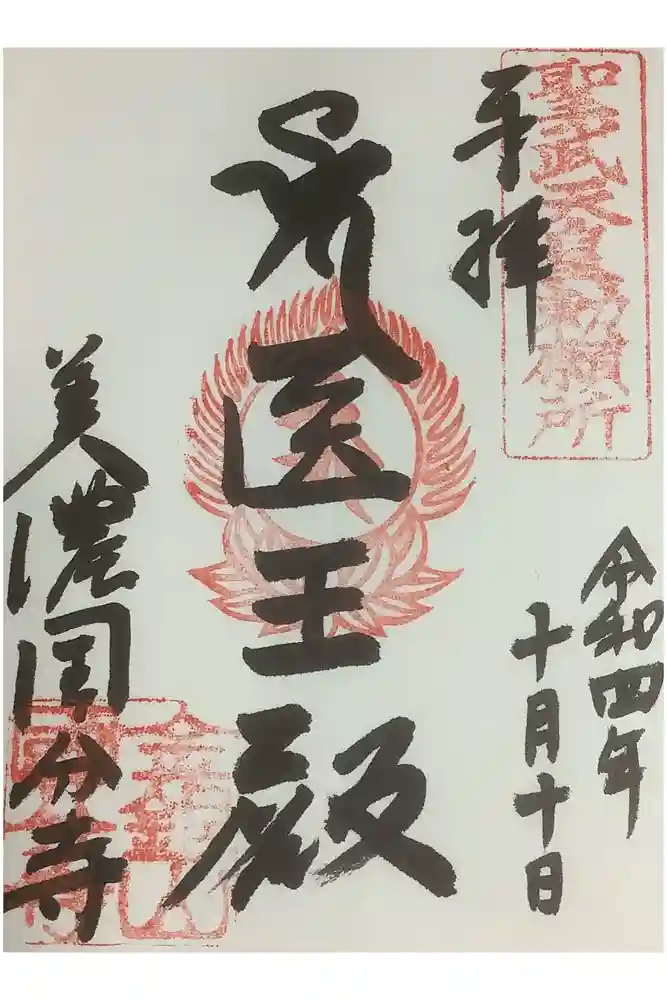 聖武天皇勅願所
奉拝
令和四年
十月十日
医王殿
美濃国分寺
金銀山
国分寺